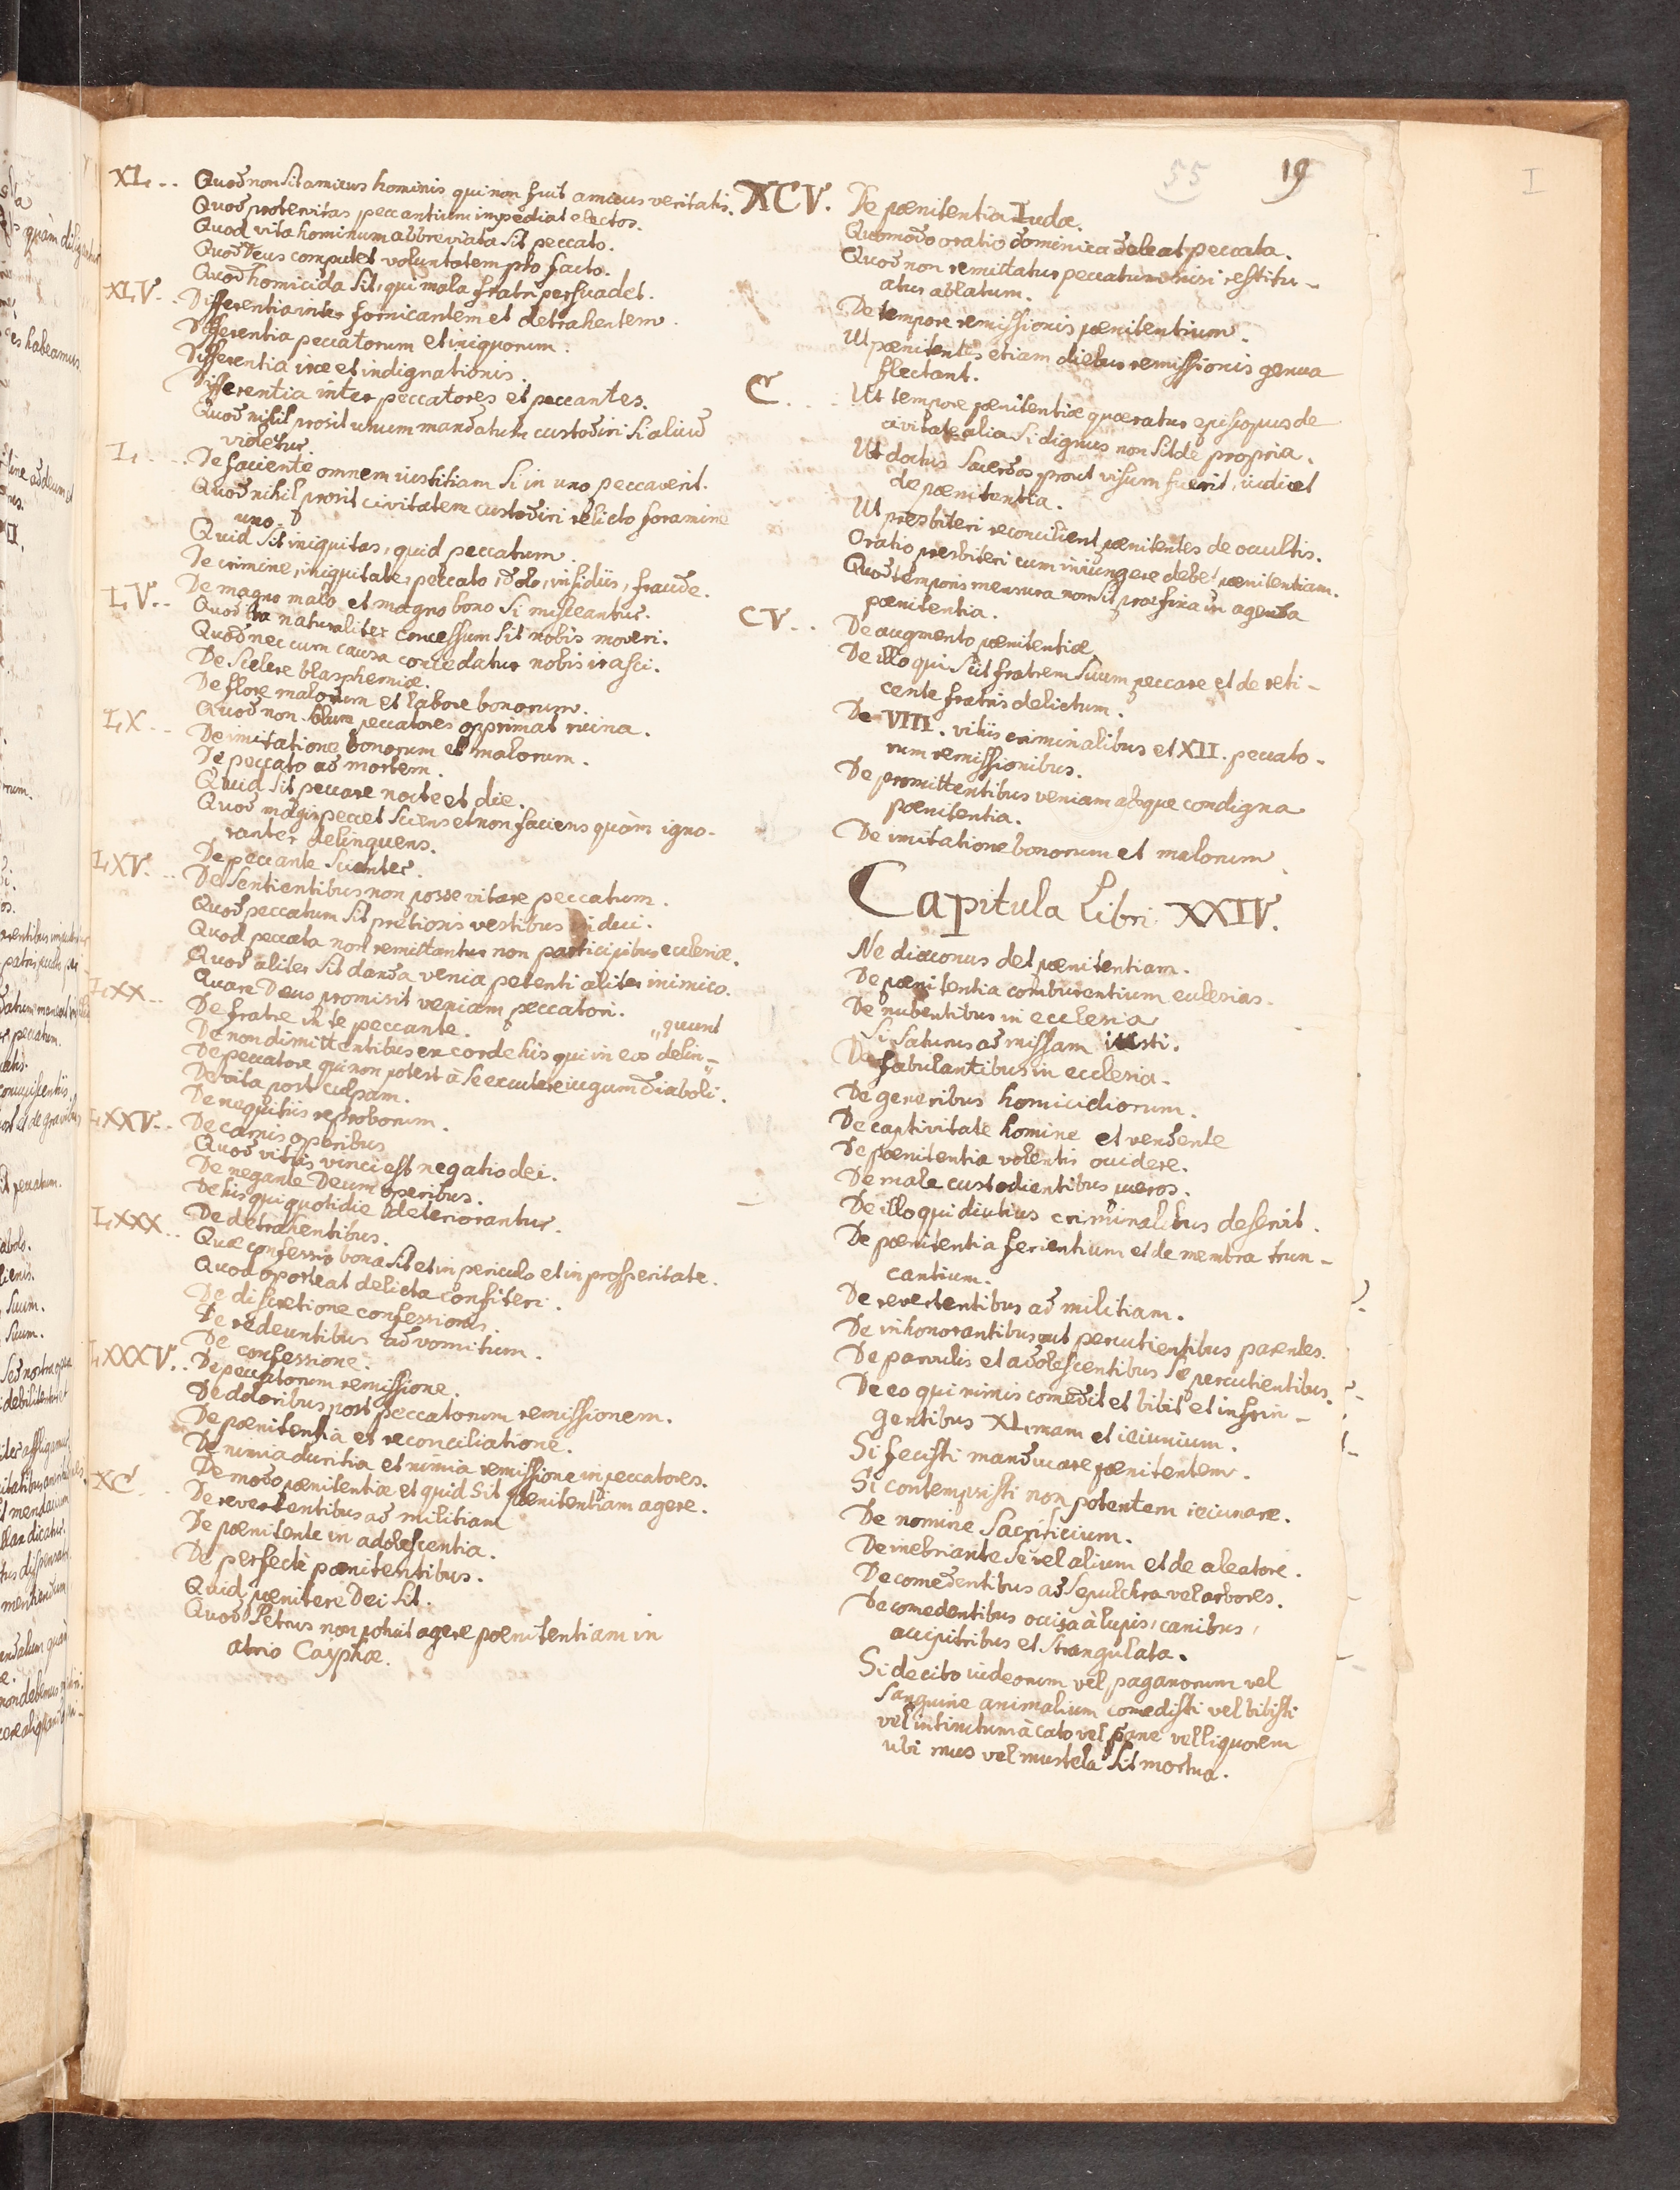 55
19
I
XL. .. Quod non sit amicus hominis qui non fuit amicus veritatis.
Quod protervitas peccantium impediat electos.
Quod vita hominum abbreviata sit peccato.
Quod Deus computet voluntatem pro facto.
Quod homicida sit, qui mala fratri persuadet.
XLV. . Differentia inter fornicantem et detrahentem.
Differentia peccatorum et iniquorum.
Differentia irae et indignationis.
Differentia inter peccatores et peccantes.
Quod nihil prosit unum mandatum custodiri si aliud
violetur
L. .. De faciente omnem iustitiam si in uno peccaverit.
Quod nihil prosit civitatem custodiri relicto foramine
uno.
Quid sit iniquitas, quid peccatum.
De crimine, iniquitate, peccato, dolo, insidiis, fraude.
De magno malo et magno bono si misceantur.
LV. .. Quod ira naturaliter concessum sit nobis moveri.
Quod nec cum causa concedatur nobis irasci.
De scelere blasphemiae.
De flore malorum et labore bonorum.
Quod non solum peccatores opprimat ruina.
LX. .. De imitatione bonorum et malorum.
De peccato ad mortem.
Quid sit peccare nocte et die.
Quod magis peccet sciens et non faciens quàm igno-
ranter delinquens.
LXV. .. De peccante scienter.
De sentientibus non posse vitare peccatum.
Quod peccatum sit pretiosis vestibus indui.
Quod peccata non remittantur non participibus ecclesiae.
Quod aliter sit danda venia petenti aliter inimico.
LXX .. Quare Deus promisit veniam peccatori.
De fratre in te peccante.
quunt
De non dimittentibus ex corde his qui in eos delin-
De peccatore qui non potest à se excutere iugum diaboli.
De vita post culpam.
De nequitiis reproborum.
LXXV. .. De carnis operibus
Quod vitiis vinci est negatio dei.
De negante Deum operibus.
De his qui quotidie deteriorantur.
De detrahentibus.
LXXX .. Quae confessio bona sit et in periculo et in prosperitate.
Quod oporteat delicta confiteri.
De discretione confessionis
De redeuntibus ad vomitum.
De confessione.
LXXXV. . De peccatorum remissione.
De doloribus post peccatorum remissionem.
De poenitentia et reconciliatione.
De nimia duritia et nimia remissione in peccatores.
De modo poenitentiae et quid sit poenitentiam agere.
XC . . De revertentibus ad militiam
De poenitente in adolescentia.
De perfecte poenitentibus.
Quid poenitere Dei sit.
Quod Petrus non potuit agere poenitentiam in
atrio Cayphae.
XCV. De poenitentia Iudae.
Quomodo oratio dominica deleat peccata.
Quod non remittatur peccatum nisi restitu-
atur ablatum.
De tempore remissionis poenitentium.
Ut poenitentes etiam diebus remissionis genua
flectant.
C. . . Ut tempore poenitentiae quaeratur episcopus de
civitate alia si dignus non sit de propria.
Ut doctus sacerdos prout visum fuerit, iudicet
de poenitentia.
Ut presbiteri reconcilient poenitentes de occultis.
Oratio presbiteri cum iniungere debet poenitentiam.
Quod temporis mensura non sit praefixa in agenda
poenitentia.
CV. .. De augmento poenitentiae
De illo qui scit fratrem suum peccare et de reti-
cente fratris delictum.
De VIII. vitiis criminalibus et XII. peccato-
rum remissionibus.
De promittentibus veniam absque condigna
poenitentia.
De imitatione bonorum et malorum.
Capitula Libri XXIV.
Ne diaconus det poenitentiam.
De poenitentia comburentium ecclesias.
De nubentibus in ecclesia
Si saturus ad missam iusti.
De fabulantibus in ecclesia.
De generibus homicidiorum.
De captivitate homine et vendente
De poenitentia volentis occidere.
De male custodientibus pueros.
De illo qui diutius criminalibus deservit.
De poenitentia ferientium et de membra trun-
cantium.
De revertentibus ad militiam.
De inhonorantibus aut percutientibus parentes.
De parvulis et adolescentibus se percutientibus.
De eo qui nimis comedit et bibit et infrin-
gentibus XLmam et ieiunium.
Si fecisti manducare poenitentem.
Si contempsisti non potentem ieiunare.
De nomine sacrificium.
De inebriante se vel alium et de aleatore.
De comedentibus ad sepulchra vel arbores.
De comedentibus occisa à lupis, canibus,
accipitribus et strangulata.
Si de cibo iudeorum vel paganorum vel
sanguine animalium comedisti vel bibisti
vel intinctum à cato vel pane vel liquorem
ubi mus vel mustela sit mortua.